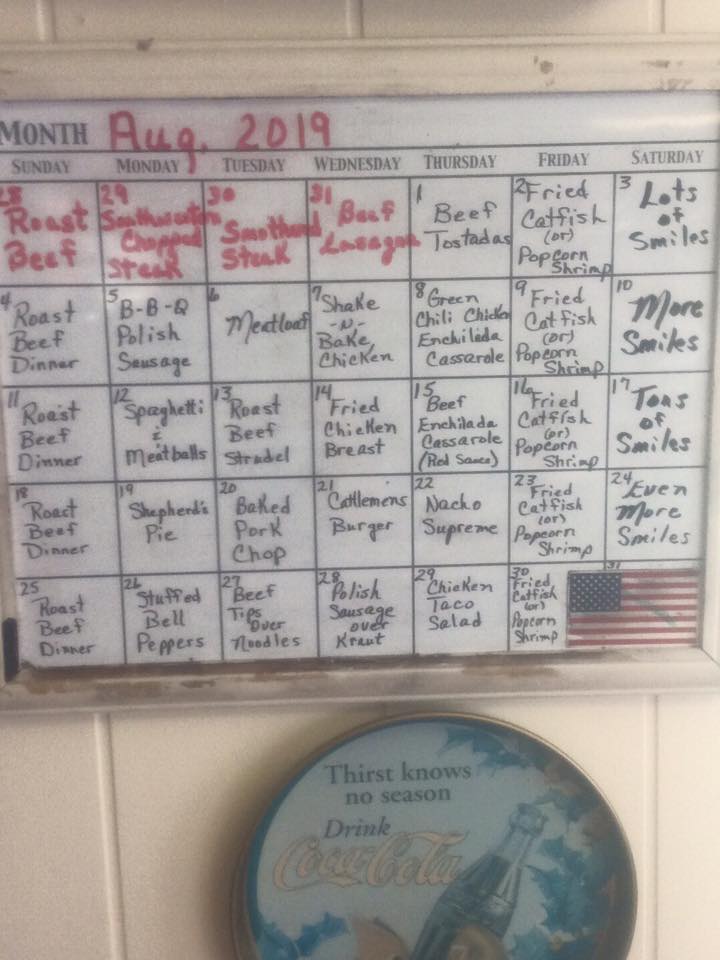 MONTH Aug. 2019
SUNDAY MONDAY TUESDAY WEDNESDAY THURSDAY FRIDAY SATURDAY
28
Roast
Beef
29
Southwestern
Chopped
Steak
30
Smothered
Steak
31
Beef
Lasagna
1
Beef
Tostadas
2 Fried
Catfish
(or)
Popcorn
Shrimp
3 Lots
of
Smiles
4
Roast
Beef
Dinner
5
B-B-Q
Polish
Sausage
6
Meatloaf
7 Shake
-N-
Bake
Chicken
8 Green
Chili Chicken
Enchilada
Cassarole
9 Fried
Catfish
(or)
Popcorn
Shrimp
10
More
Smiles
11
Roast
Beef
Dinner
12
Spaghetti
&
Meatballs
13
Roast
Beef
Strudel
14
Fried
Chicken
Breast
15
Beef
Enchilada
Cassarole
(Red Sauce)
16
Fried
Catfish
(or)
Popcorn
Shrimp
17
Tons
of
Smiles
18
Roast
Beef
Dinner
19
Shepherd's
Pie
20
Baked
Pork
Chop
21
Cattlemens
Burger
22
Nacho
Supreme
23
Fried
Catfish
(or)
Popcorn
Shrimp
24
Even
More
Smiles
25
Roast
Beef
Dinner
26
Stuffed
Bell
Peppers
27
Beef
Tips
Over
Noodles
28
Polish
Sausage
over
Kraut
29
Chicken
Taco
Salad
30
Fried
Catfish
(or)
Popcorn
Shrimp
31
Thirst knows
no season
Drink
Coca-Cola